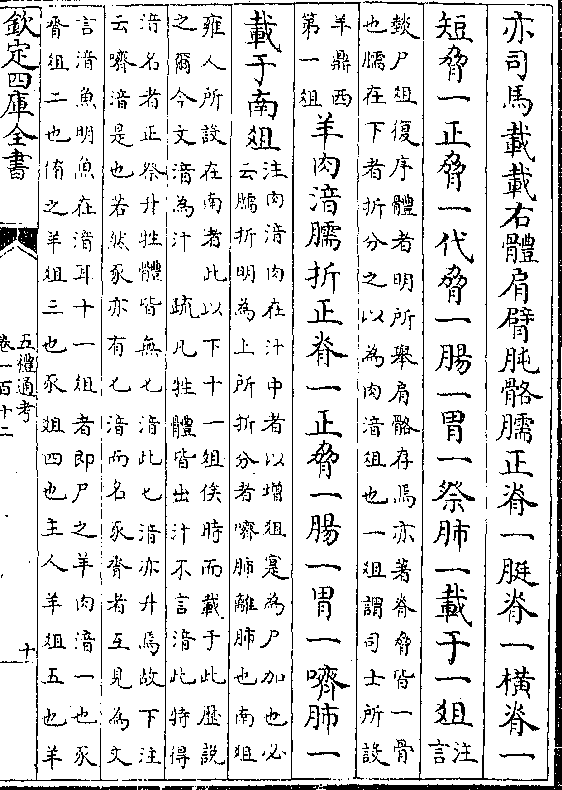 亦司馬載載右體肩臂肫骼臑正脊一脡脊一橫脊一
短脅一正脅一代脅一腸一胃一祭肺一載于一俎注言
燅尸俎復序體者明所舉肩骼存焉亦著脊脅皆一骨
也臑在下者折分之以為肉湆俎也一俎謂司士所設
羊鼎西
第一俎
羊肉湆臑折正脊一正脅一腸一胃一嚌肺一
載于南俎
注肉湆肉在汁中者以增俎寔為尸加也必
云臑折明為上所折分者嚌肺離肺也南俎
雍人所設在南者此以下十一俎俟時而載于此歴説
之爾今文湆為汁 疏凡牲體皆出汁不言湆此特得
湆名者正祭升牲體皆無匕湆此匕湆亦升焉故下注
云嚌湆是也若然豕亦有匕湆而名豕脀者互見為文
言湆魚明魚在湆耳十一俎者即尸之羊肉湆一也豕
脀俎二也侑之羊俎三也豕俎四也主人羊俎五也羊
欽定四庫全書
五禮通考
卷一百十二
十